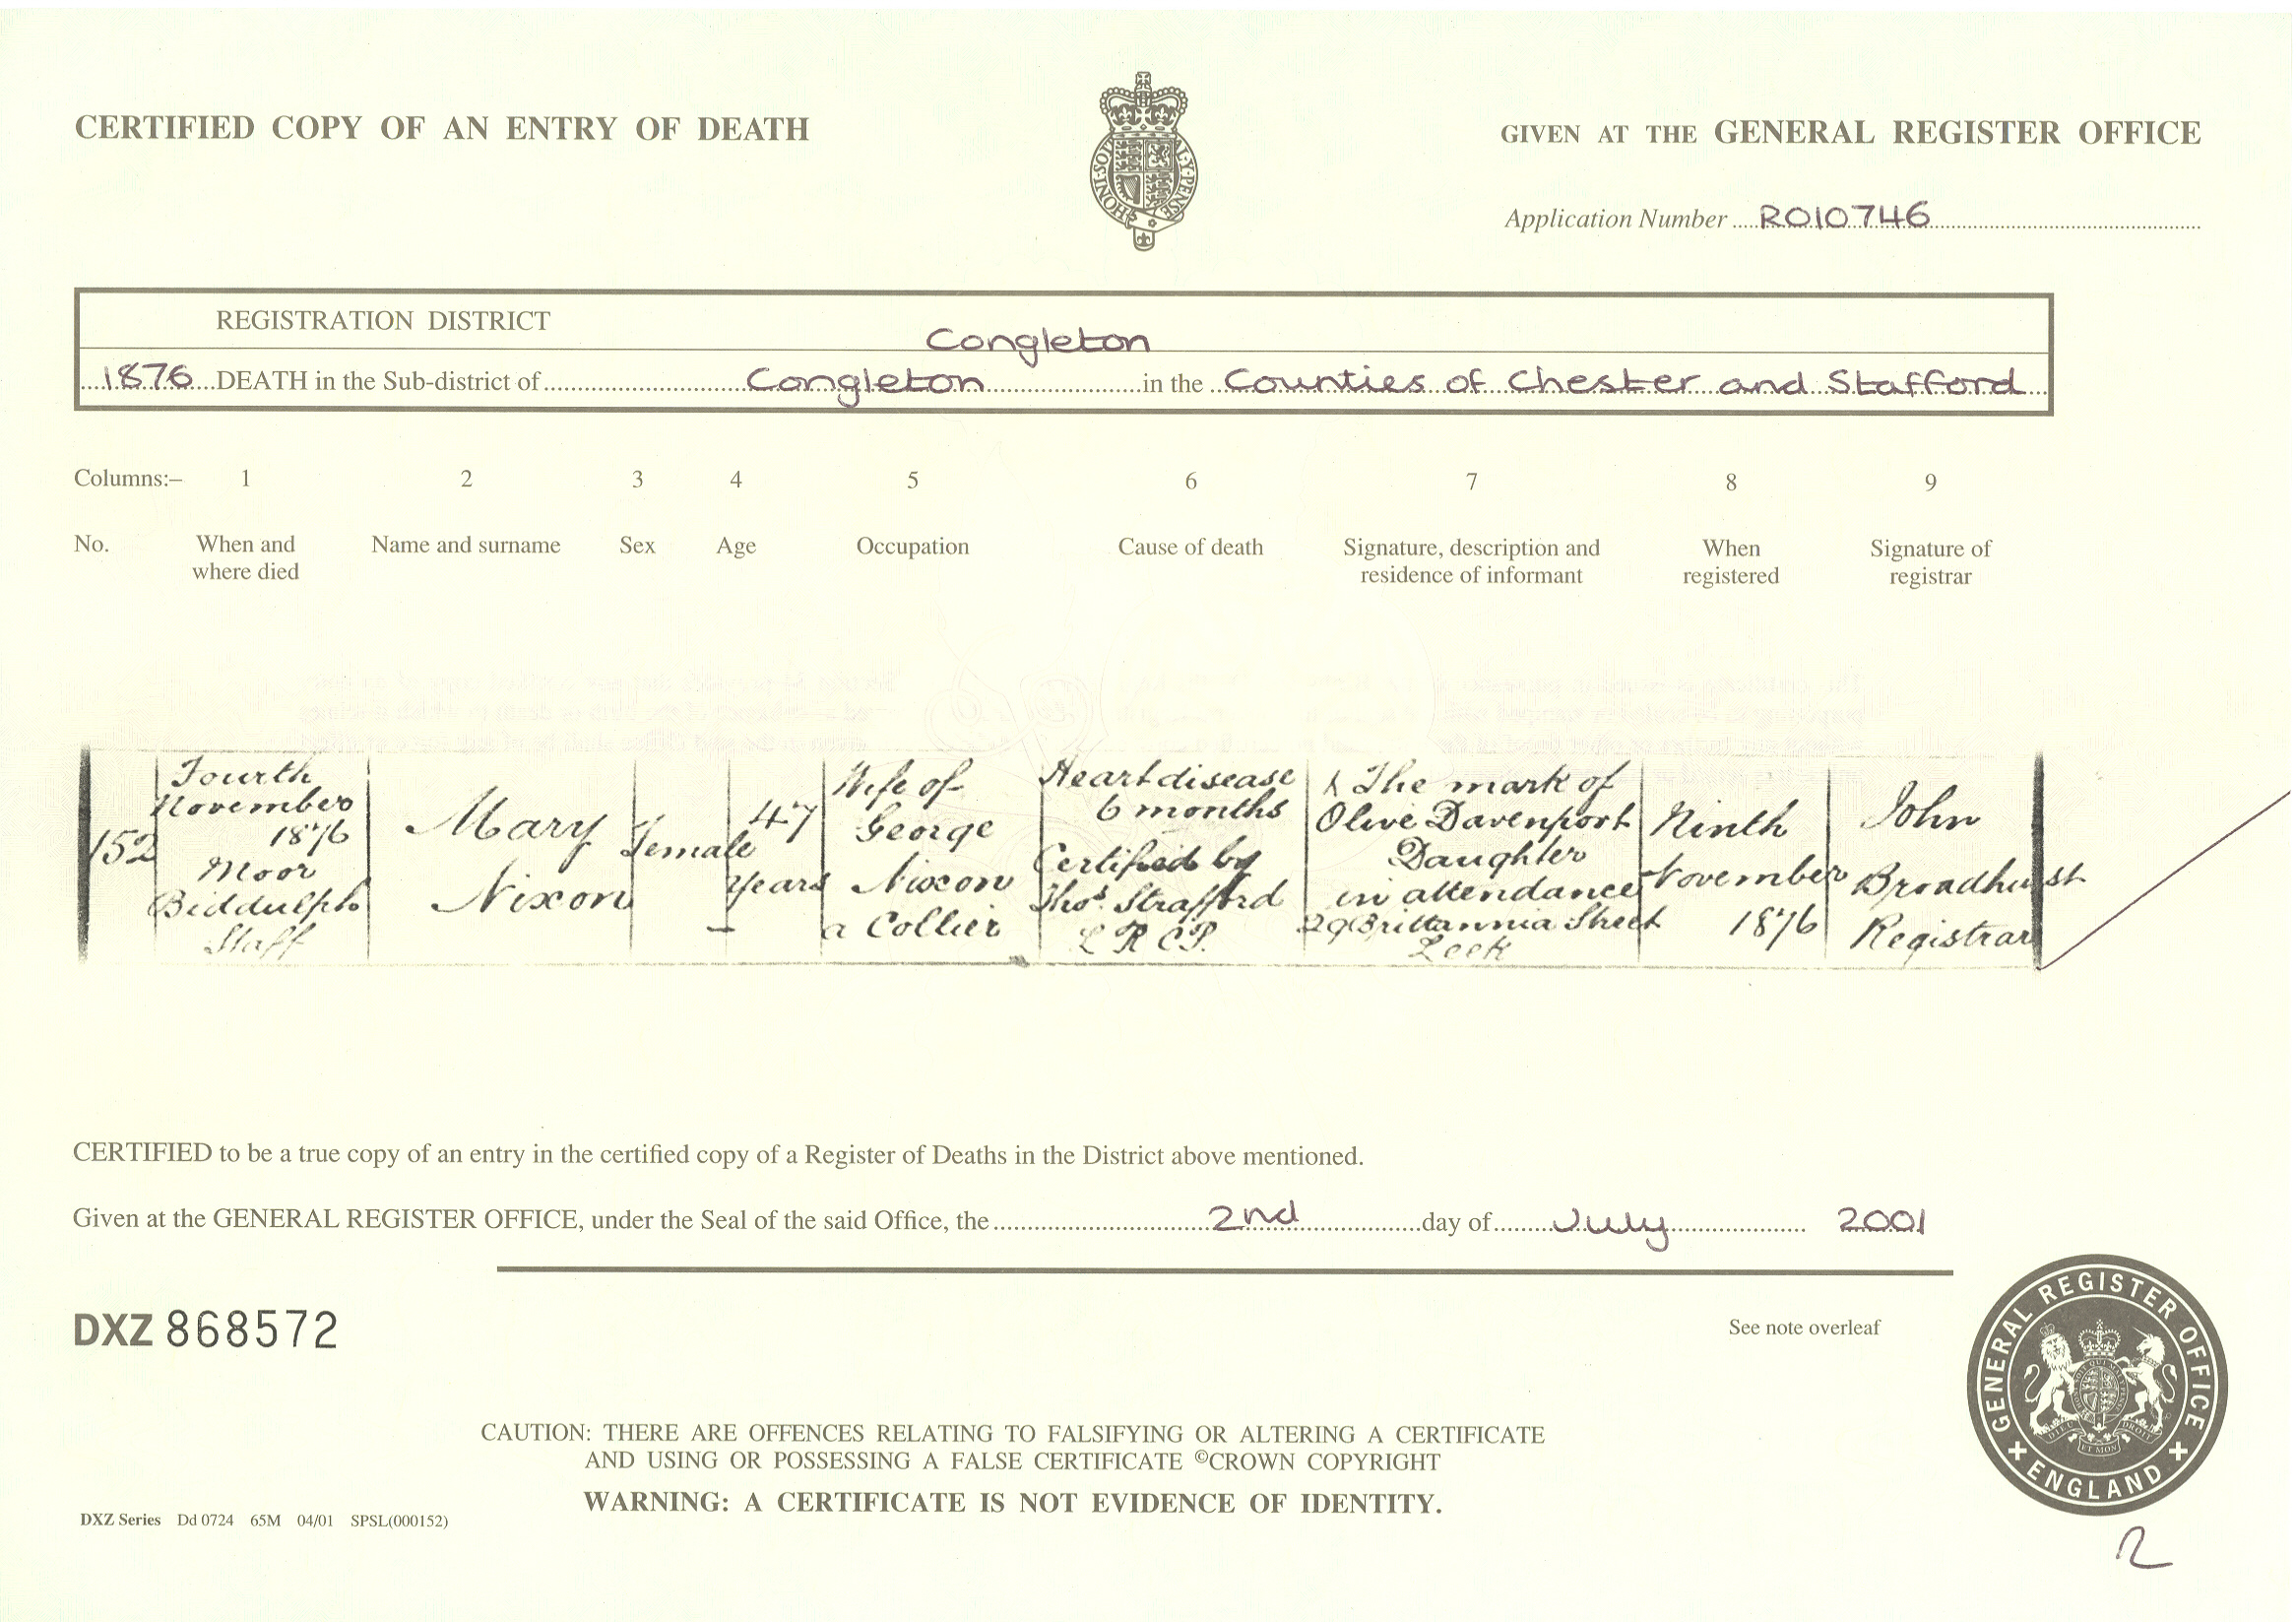 CERTIFIED COPY OF AN ENTRY OF DEATH
GIVEN AT THE GENERAL REGISTER OFFICE
HONI·SOI AL·Y·PENSE
Application Number R010746
REGISTRATION DISTRICT
Congleton
1876 DEATH in the Sub-district of Congleton in the Counties of Chester and Stafford
Columns:– 1 2 3 4 5 6 7 8 9
No.
When and
where died
Name and surname
Sex
Age
Occupation
Cause of death
Signature, description and
residence of informant
When
registered
Signature of
registrar
152
Fourth
November
1876
Moor
Biddulph
Staff
Mary
Nixon
Female
47
years
Wife of
George
Nixon
a Collier
Heart disease
6 months
Certified by
Thos. Strafford
L R C P.
X The mark of
Olive Davenport
Daughter
in attendance
29 Brittannia Street
Leek
Ninth
November
1876
John
Broadhurst
Registrar
CERTIFIED to be a true copy of an entry in the certified copy of a Register of Deaths in the District above mentioned.
Given at the GENERAL REGISTER OFFICE, under the Seal of the said Office, the 2nd day of July 2001
DXZ 868572
See note overleaf
GENERAL REGISTER OFFICE
ENGLAND
CAUTION: THERE ARE OFFENCES RELATING TO FALSIFYING OR ALTERING A CERTIFICATE
AND USING OR POSSESSING A FALSE CERTIFICATE ©CROWN COPYRIGHT
WARNING: A CERTIFICATE IS NOT EVIDENCE OF IDENTITY.
DXZ Series Dd 0724 65M 04/01 SPSL(000152)